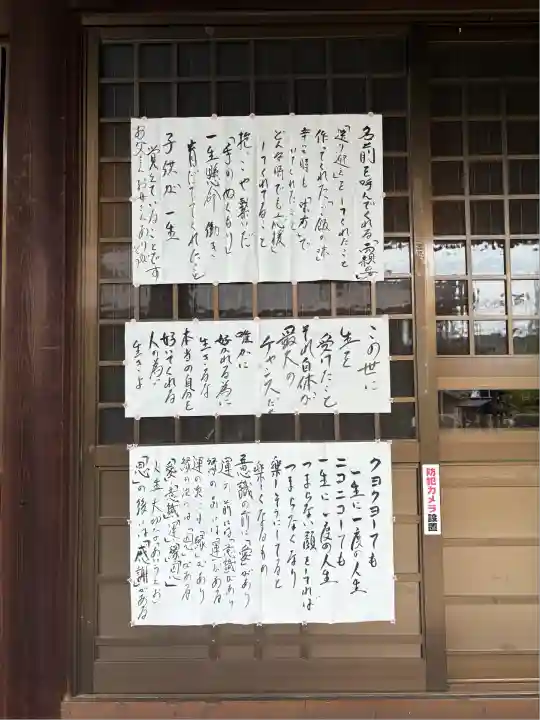 名前を呼んでくれる「両親」
「送り迎え」をしてくれたこと
作ってくれた「ご飯の味」
辛い時も「味方」で
いてくれたこと
どんな時でも「応援」
してくれてること
抱っこや繋いだ
「手のぬくもり」
一生懸命働き
育ててくれたこと
子供が一生
覚えているようです
お父さんお母さんありがとう
この世に
生を
受けたこと
それ自体が
最大の
チャンスだ
誰かに
好かれる為に
生きるな
本当の自分を
好いてくれる
人の為に
生きよ
クヨクヨしても
一生に一度の人生
ニコニコしても
一生に一度の人生
つまらない顔をしてれば
つまらなくなり
楽しそうにしてると
楽しくなるもの
意識の前に「愛」があり
運の前には「意識」があり
縁の前には「運」がある
運の次には「縁」があり
縁の次には「恩」がある
「愛・意識・運・縁・恩」
人生大切な「あいうえお」
「恩」の後には「感謝」がある
防犯カメラ設置